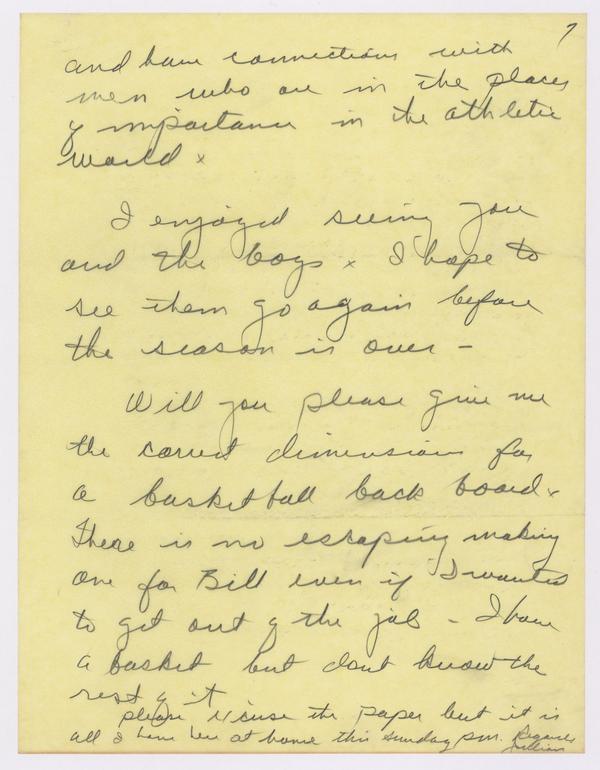 7
and have connections with
men who are in the places
of importance in the athletic
world x
I enjoyed seeing you
and the boys x I hope to
see them go again before
the season is over -
Will you please give me
the correct dimensions for
a basketball back board x
There is no escaping making
one for Bill even if I wanted
to get out of the job - I have
a basket but dont know the
rest of it
please x'cuse the paper but it is
all I have here at home this sunday p.m. Regards